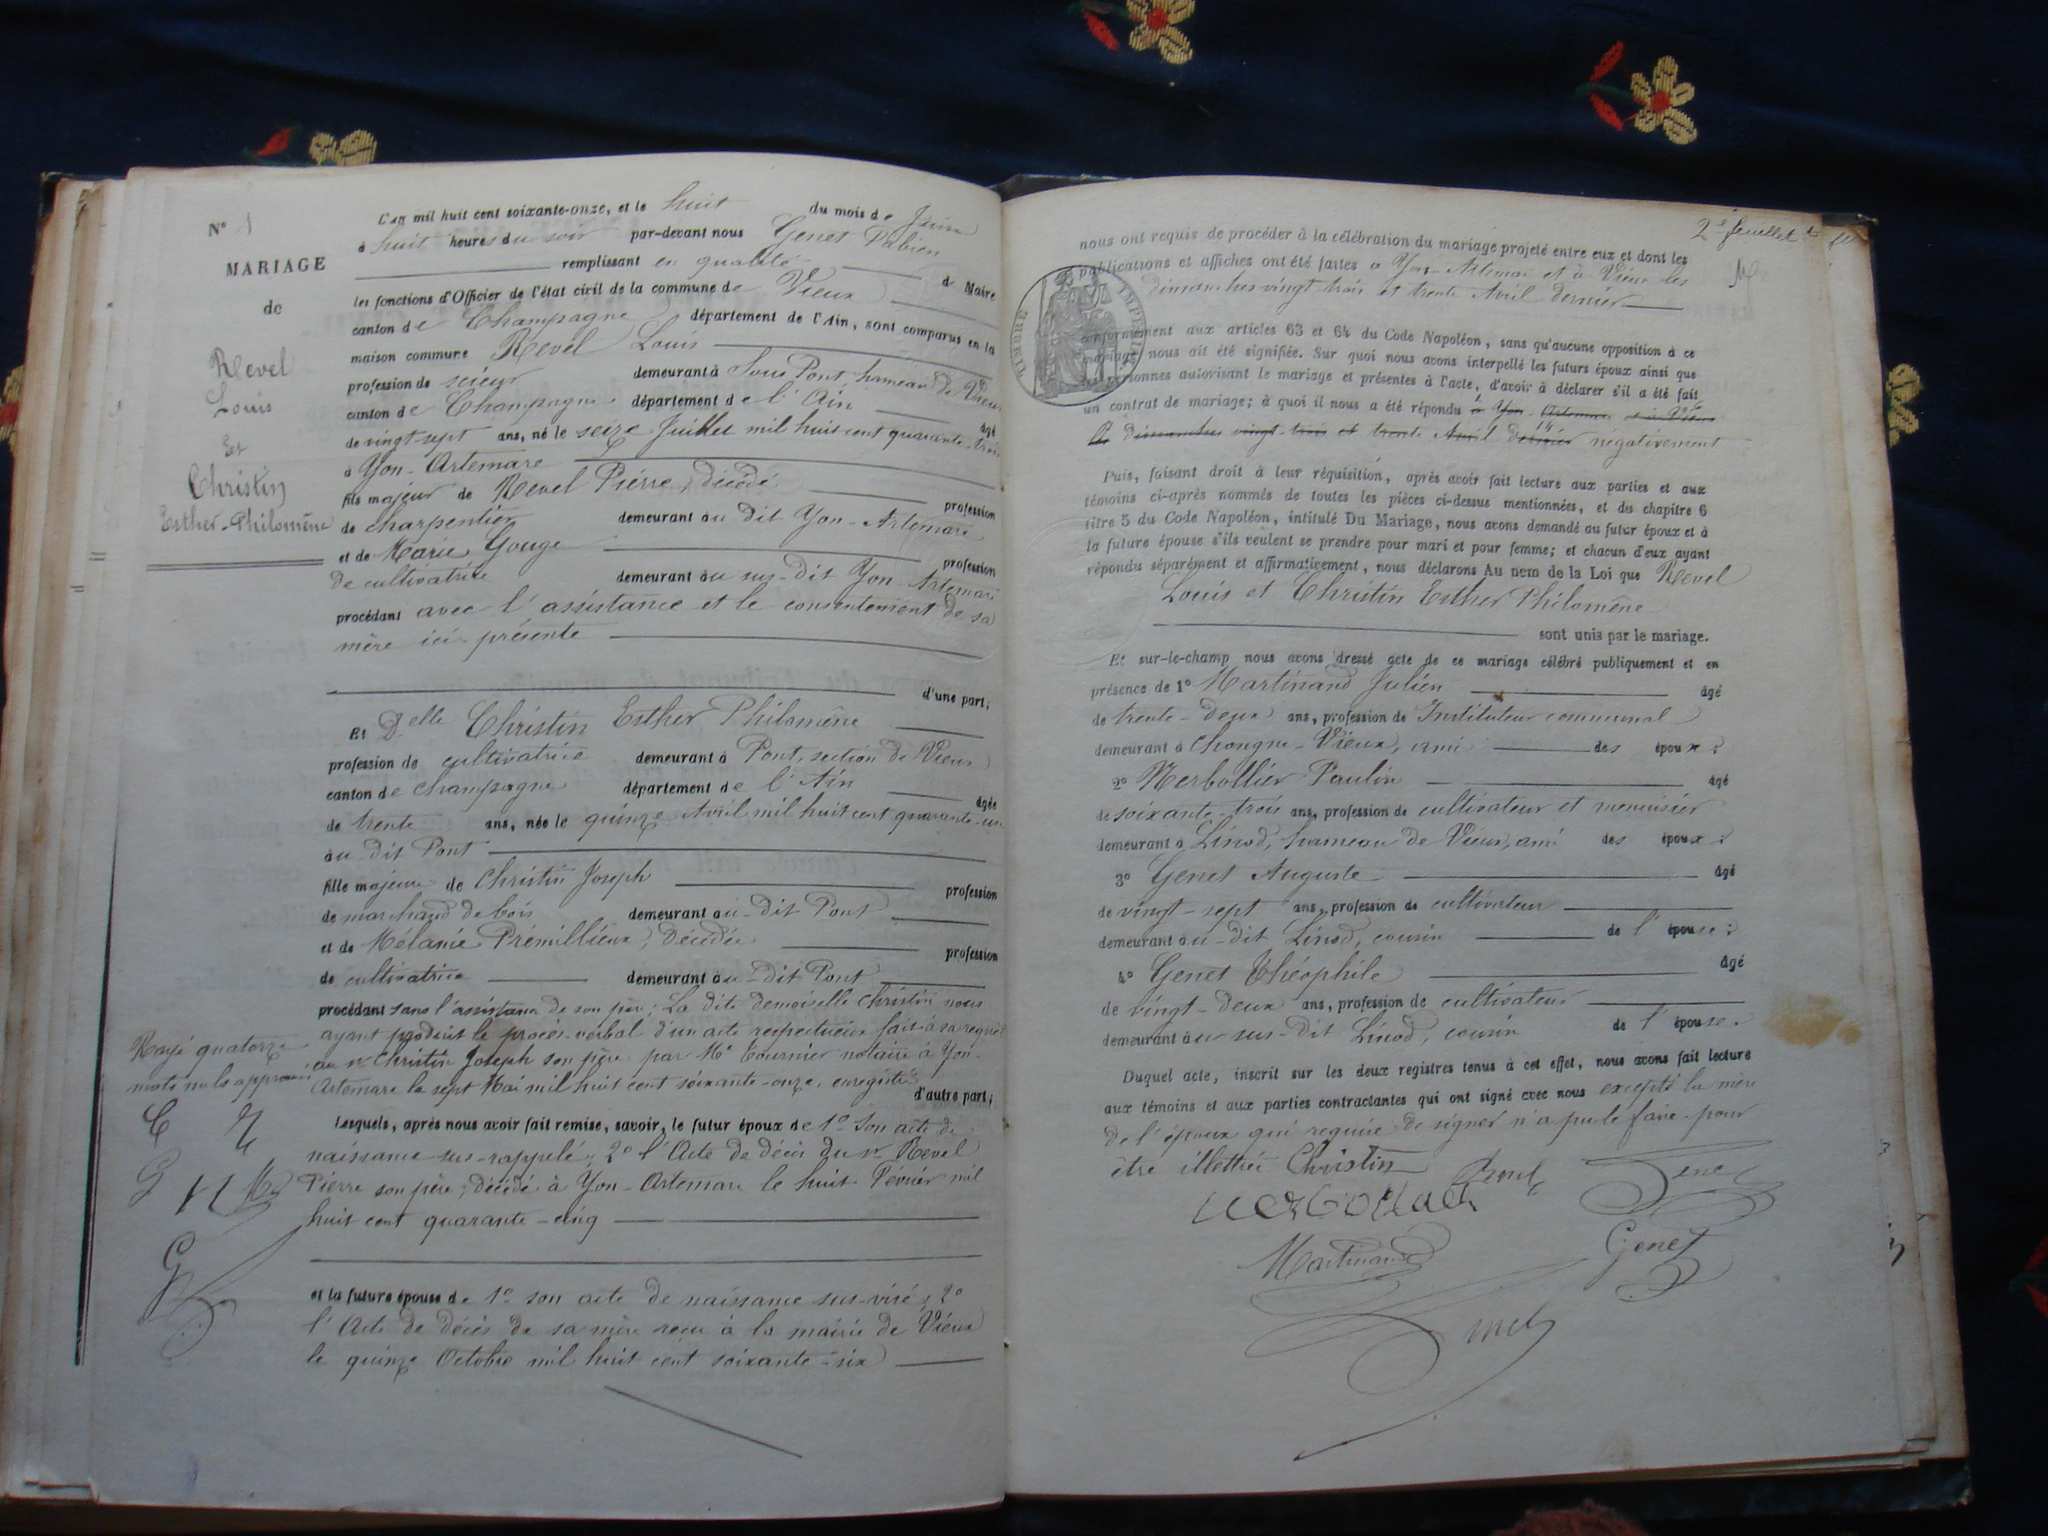 N° 1
MARIAGE
de
Revel
Louis
Et
Christin
Esther-Philomène
Rayé quatorze
mots nuls approuvé
L'an mil huit cent soixante-onze, et le huit du mois de Juin
à huit heures du soir par-devant nous Genet Fabien
remplissant en qualité de Maire
les fonctions d'Officier de l'état civil de la commune de Vieux
canton de Champagne département de l'Ain, sont comparus en la
maison commune Revel Louis
profession de scieur demeurant à Sous Pont, hameau de Vieux
canton de Champagne département de l'Ain âgé
de vingt-sept ans, né le seize Juillet mil huit cent quarante-trois
à Yon-Artemare
fils majeur de Revel Pierre, décédé profession
de charpentier demeurant au dit Yon-Artemare
et de Marie Gouge profession
de cultivatrice demeurant au sus-dit Yon-Artemare
procédant avec l'assistance et le consentement de sa
mère ici présente
d'une part;
Et Delle Christin Esther Philomène
profession de cultivatrice demeurant à Pont, section de Vieux
canton de Champagne département de l'Ain âgée
de trente ans, née le quinze Avril mil huit cent quarante-un
au-dit Pont
fille majeure de Christin Joseph profession
de marchand de bois demeurant au-dit Pont
et de Mélanie Prémillieux, décédée profession
de cultivatrice demeurant au-dit Pont
procédant sans l'assistance de son père; La dite demoiselle Christin nous
ayant produit le procès-verbal d'un acte respectueux fait à sa requête
au sr Christin Joseph son père par Me Tournier notaire à Yon-
Artemare le sept Mai mil huit cent soixante-onze, enregistré
d'autre part;
Lesquels, après nous avoir fait remise, savoir, le futur époux de 1° Son acte de
naissance sus-rappelé; 2° l'Acte de décès du sr Revel
Pierre son père, décédé à Yon-Artemare le huit Février mil
huit cent quarante-cinq
et la future épouse de 1° son acte de naissance sus-visé; 2°
l'Acte de décès de sa mère reçu à la mairie de Vieux
le quinze Octobre mil huit cent soixante-six
2e feuillet
nous ont requis de procéder à la célébration du mariage projeté entre eux et dont les
publications et affiches ont été faites à Yon-Artemare et à Vieux les
dimanches vingt-trois et trente Avril dernier
TIMBRE IMPERIAL
conformément aux articles 63 et 64 du Code Napoléon, sans qu'aucune opposition à ce
mariage nous ait été signifiée. Sur quoi nous avons interpellé les futurs époux ainsi que
les personnes autorisant le mariage et présentes à l'acte, d'avoir à déclarer s'il a été fait
un contrat de mariage; à quoi il nous a été répondu à Yon-Artemare et à Vieux
les dimanches vingt-trois et trente Avril dernier négativement
Puis, faisant droit à leur réquisition, après avoir fait lecture aux parties et aux
témoins ci-après nommés de toutes les pièces ci-dessus mentionnées, et du chapitre 6
titre 5 du Code Napoléon, intitulé Du Mariage, nous avons demandé au futur époux et à
la future épouse s'ils veulent se prendre pour mari et pour femme; et chacun d'eux ayant
répondu séparément et affirmativement, nous déclarons Au nom de la Loi que Revel
Louis et Christin Esther Philomène
sont unis par le mariage.
Et sur-le-champ nous avons dressé acte de ce mariage célébré publiquement et en
présence de 1° Martinand Julien âgé
de trente-deux ans, profession de Instituteur communal
demeurant à Chongne-Vieux, ami des époux;
2° Nerbollier Paulin âgé
de soixante-trois ans, profession de cultivateur et menuisier
demeurant à Linod, hameau de Vieux, ami des époux;
3° Genet Auguste âgé
de vingt-sept ans, profession de cultivateur
demeurant au-dit Linod, cousin de l'épouse;
4° Genet Théophile âgé
de vingt-deux ans, profession de cultivateur
demeurant au sus-dit Linod, cousin de l'épouse.
Duquel acte, inscrit sur les deux registres tenus à cet effet, nous avons fait lecture
aux témoins et aux parties contractantes qui ont signé avec nous excepté la mère
de l'époux qui requise de signer n'a pu le faire pour
être illettrée Christin Revel Genet
Martinand Genet
Genet